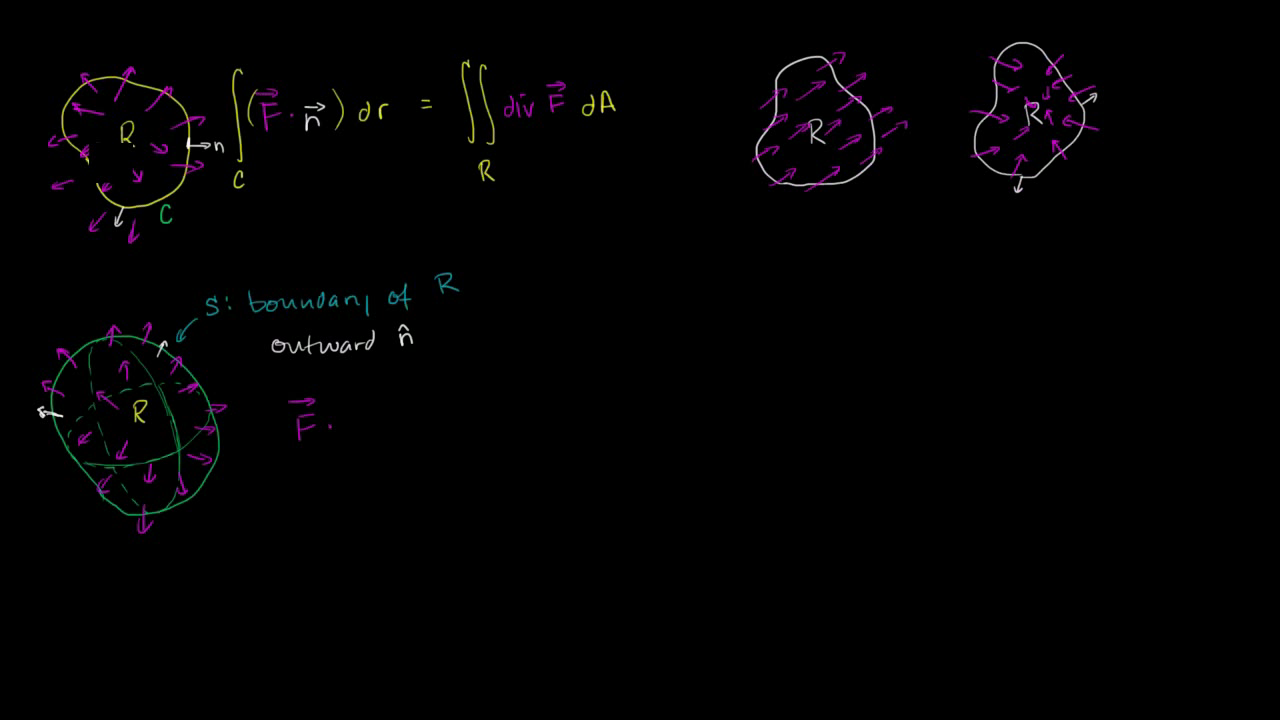 R
n
C
∫_C (F⃗ · n⃗) dr = ∬_R div F⃗ dA
R
R
S: boundary of R
outward n̂
R
F⃗ ·